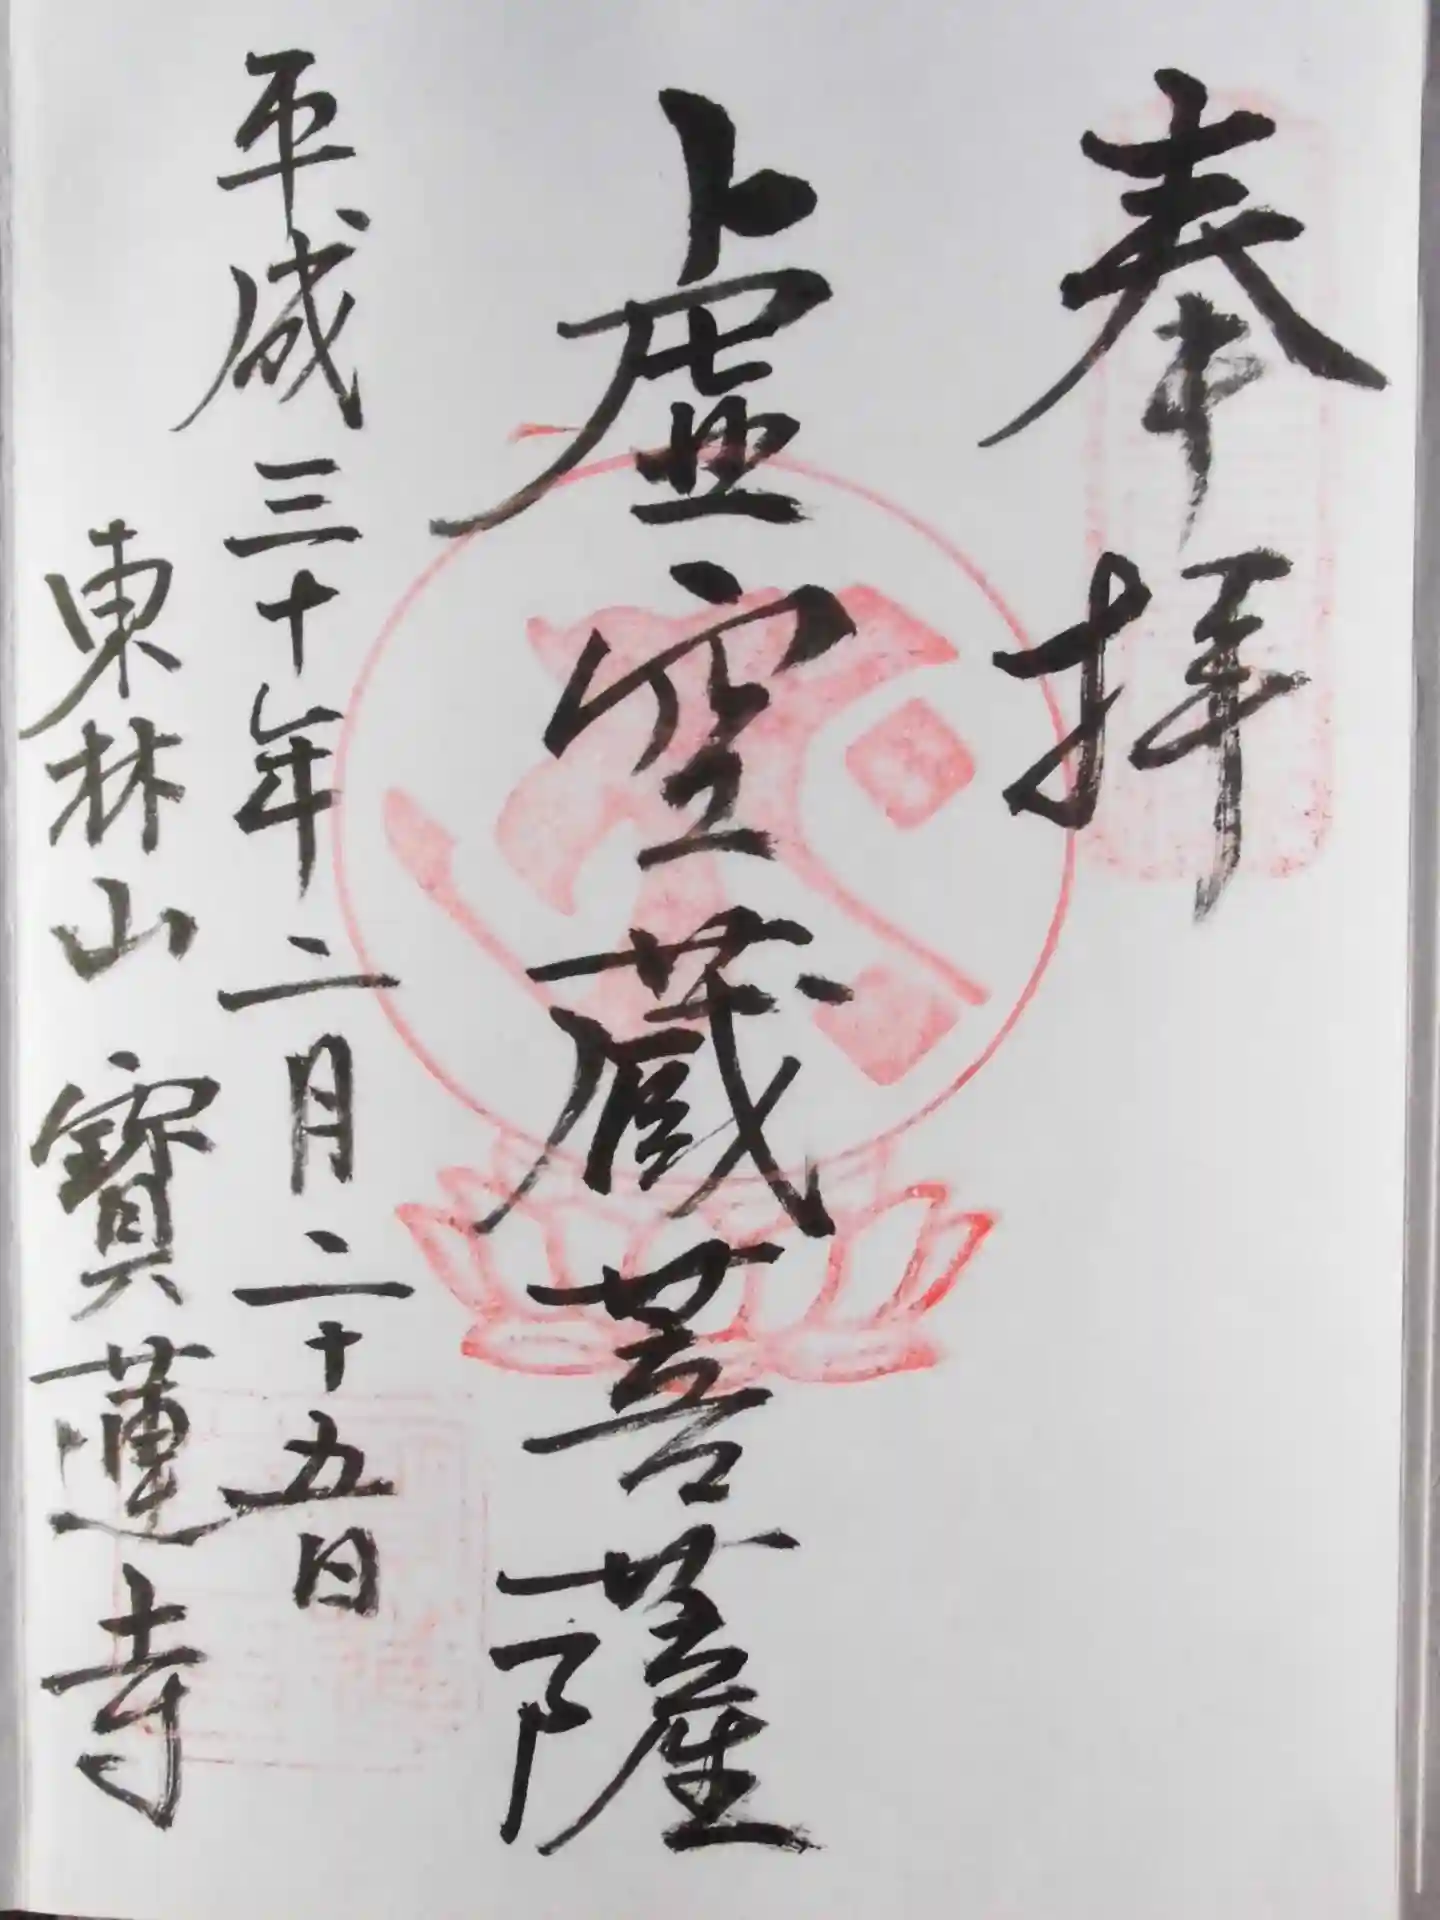 奉拝
虚空蔵菩薩
平成三十年二月二十五日
東林山 寳蓮寺